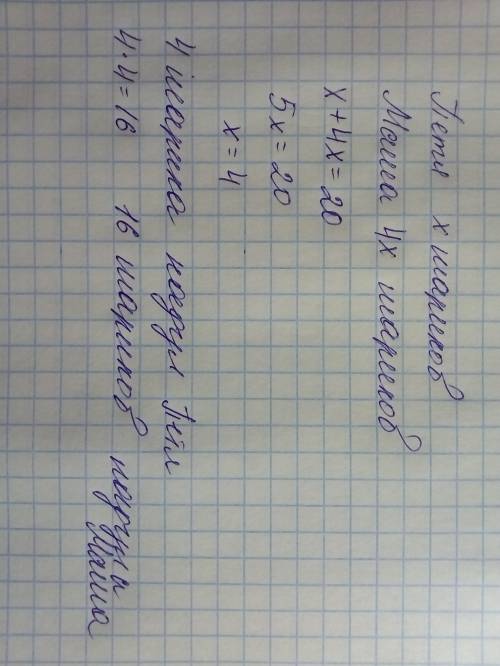 Петя x шариков
Маша 4x шариков
x+4x=20
5x=20
x=4
4 шарика надул Петя
4·4=16 16 шариков надула
Маша